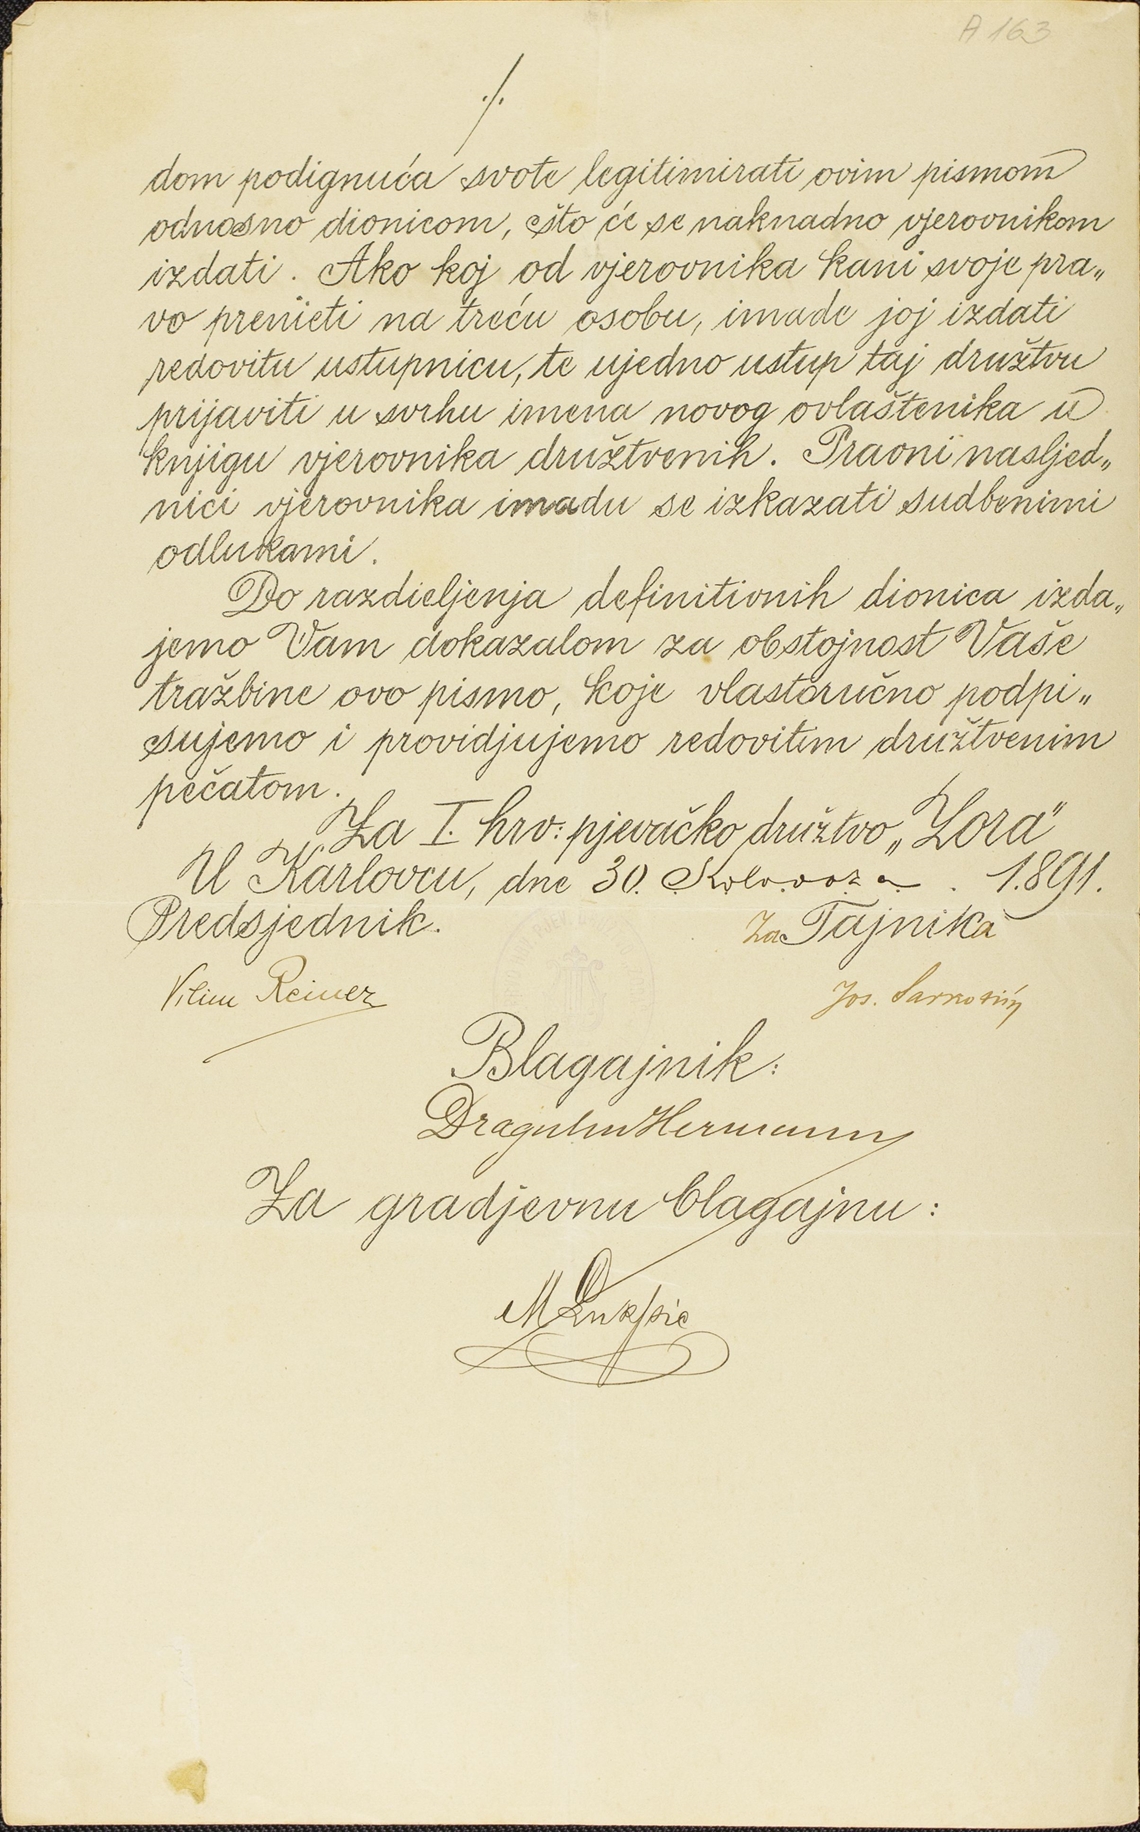 A 163
./.
dom podignuća svote legitimirati ovim pismom
odnosno dionicom, što će se naknadno vjerovnikom
izdati. Ako koj od vjerovnika kani svoje pra„
vo prenieti na treću osobu, imade joj izdati
redovitu ustupnicu, te ujedno ustup taj družtvu
prijaviti u svrhu imena novog ovlaštenika u
knjigu vjerovnika družtvenih. Pravni nasljed„
nici vjerovnika imadu se izkazati sudbenimi
odlukami.
Do razdieljenja definitivnih dionica izda„
jemo Vam dokazalom za obstojnost Vaše
tražbine ovo pismo, koje vlastoručno podpi„
sujemo i providjujemo redovitim družtvenim
pečatom.
Za I. hrv: pjevačko družtvo „Zora"
U Karlovcu, dne 30. Kolovoza. 1891.
Predsjednik. Za Tajnika
Vilim Reiner Jos.
Blagajnik:
Dragutin Hermann
Za gradjevnu blagajnu:
M Lukšić